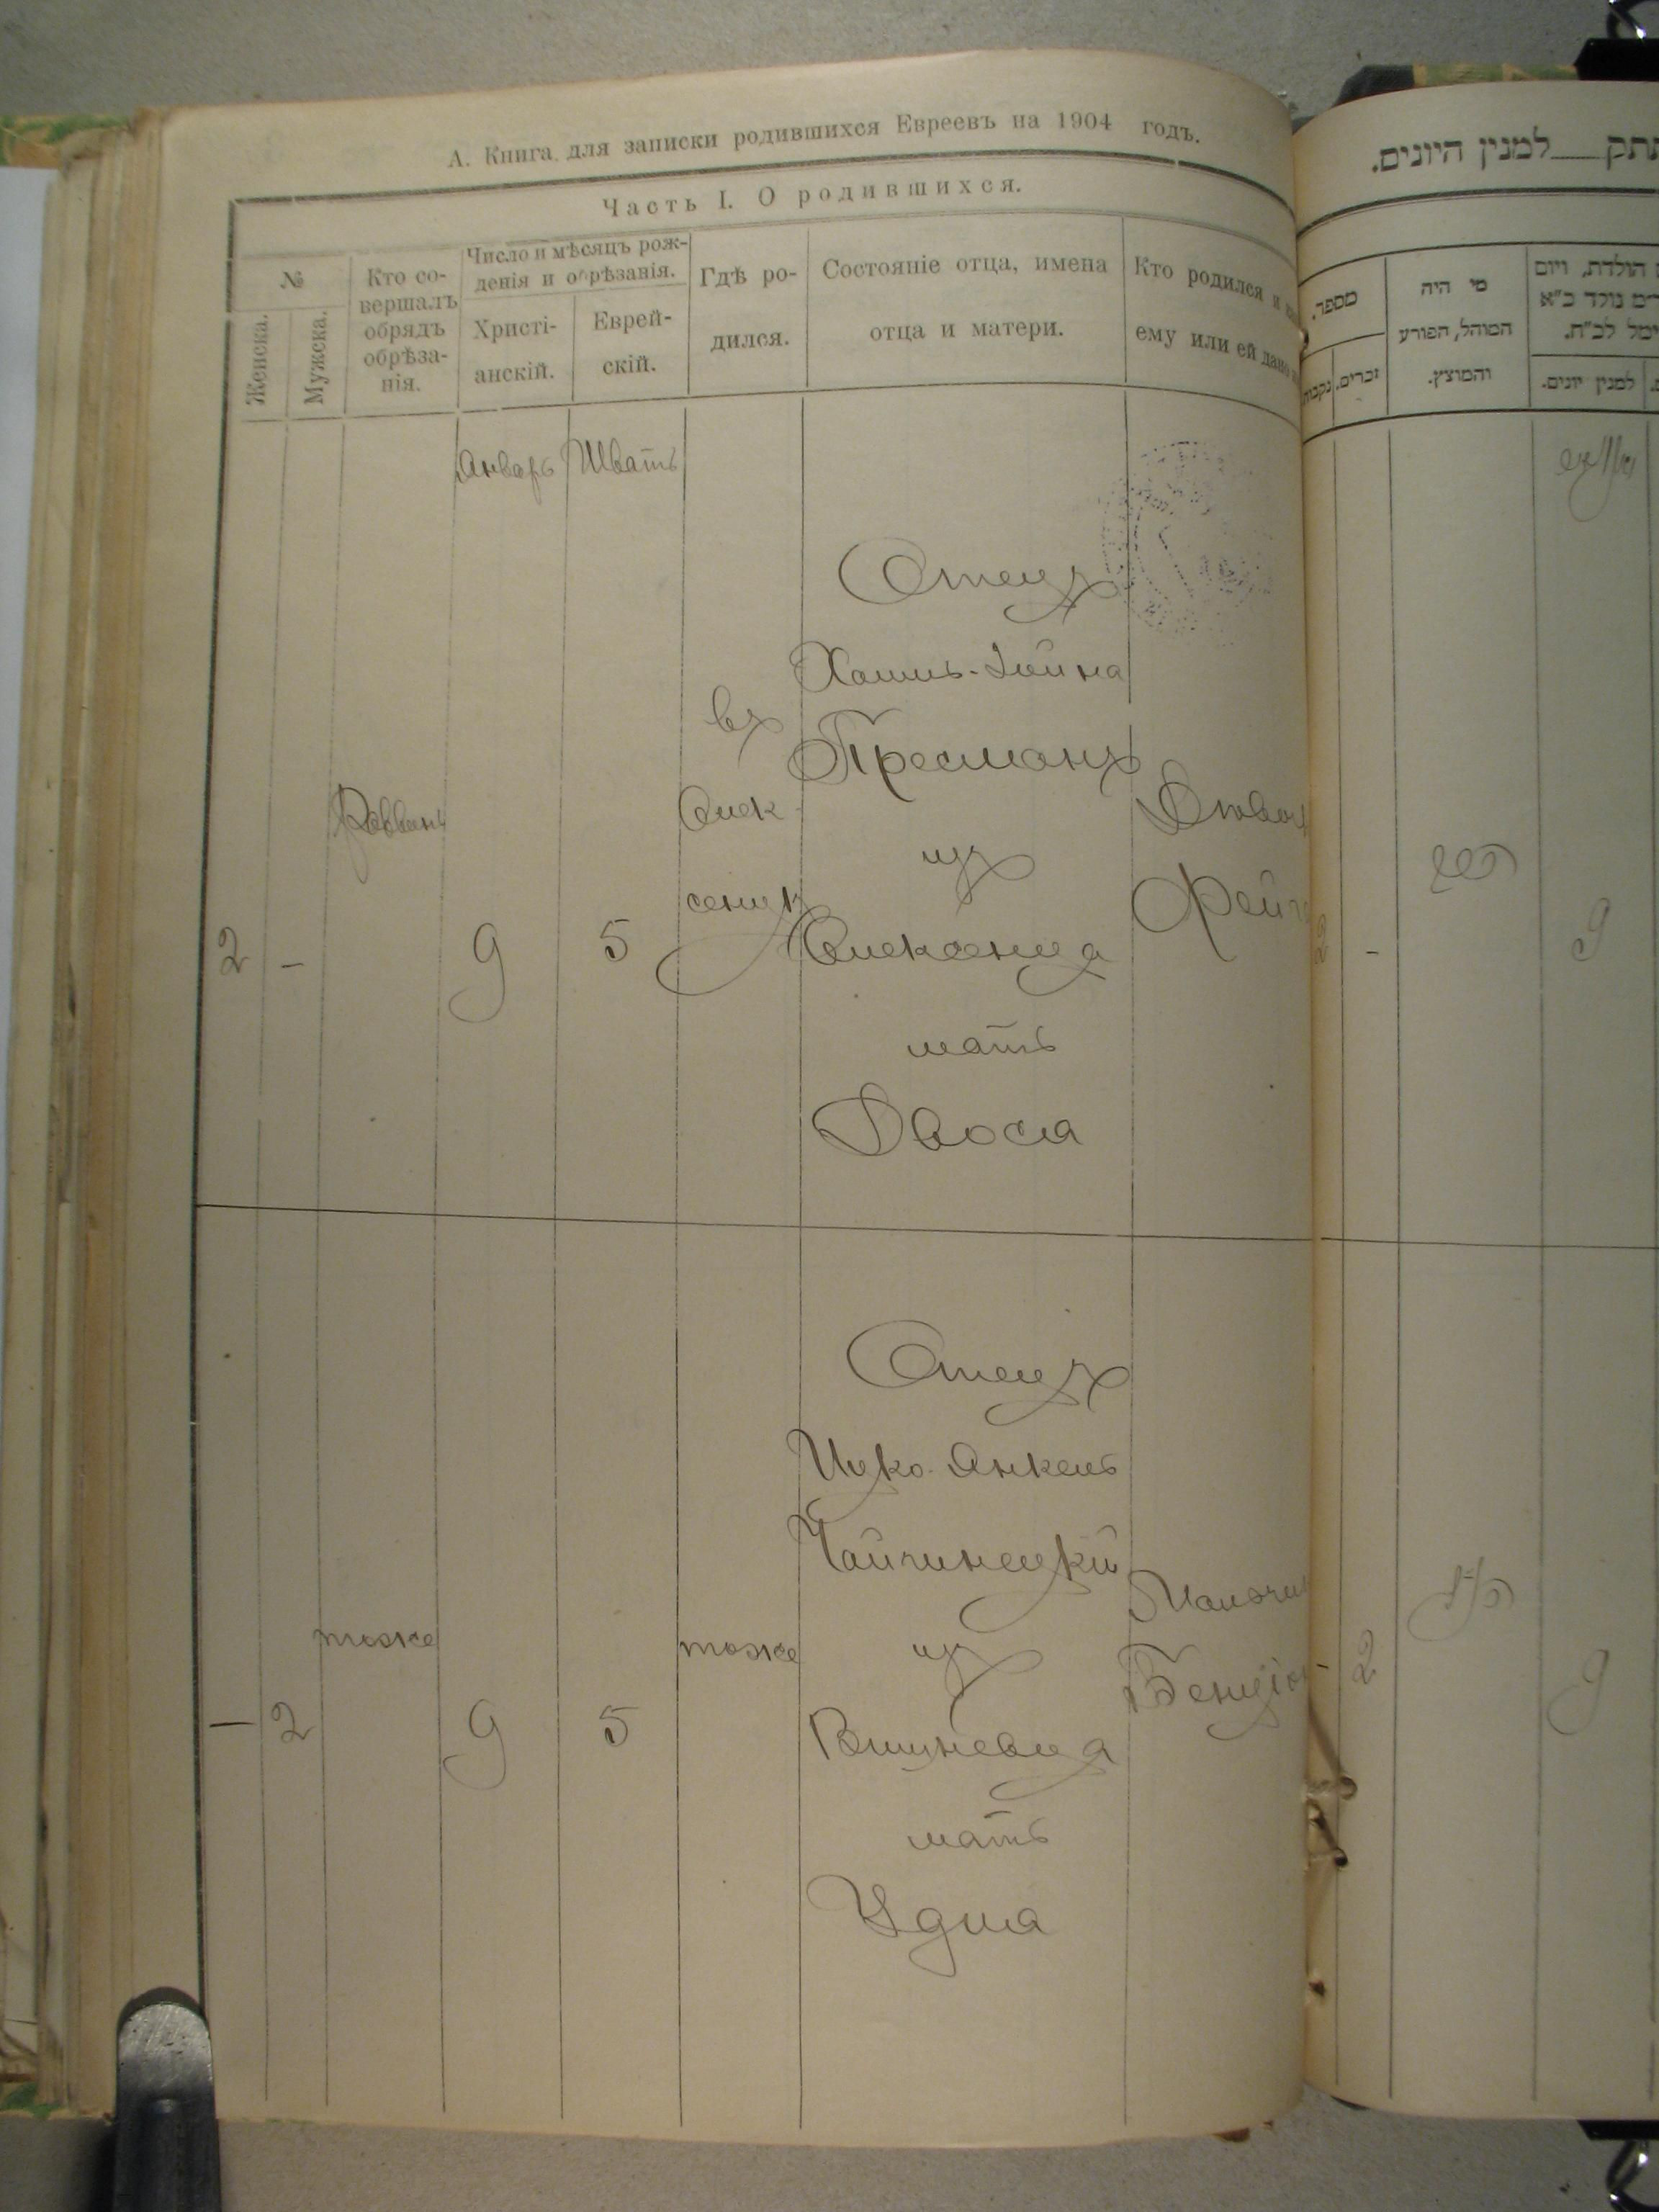 А. Книга для записки родившихся Евреевъ на 1904 годъ.
Часть I. О родившихся.
№
Женска.
Мужска.
Кто со-
вершалъ
обрядъ
обрѣза-
нія.
Число и мѣсяцъ рож-
денія и обрѣзанія.
Христі-
анскій.
Еврей-
скій.
Гдѣ ро-
дился.
Состояніе отца, имена
отца и матери.
Кто родился и
ему или ей дано
Январь Шватъ
2 – Раввинъ 9 5
въ
Олек-
сенцѣ
Отецъ
Хаимъ-Іойна
Пресманъ
изъ
Олексенца
мать
Двося
Фейга
– 2 тоже 9 5 тоже
Отецъ
Ицко-Янкель
Чайчинецкій
изъ
Вишневца
мать
Удля
למנין היונים.
מספר.
זכרים.
מי היה
המוהל, הפורע
והמוצץ.
הולדת, ויום
למנין יונים.
2 – 9
– 2 9